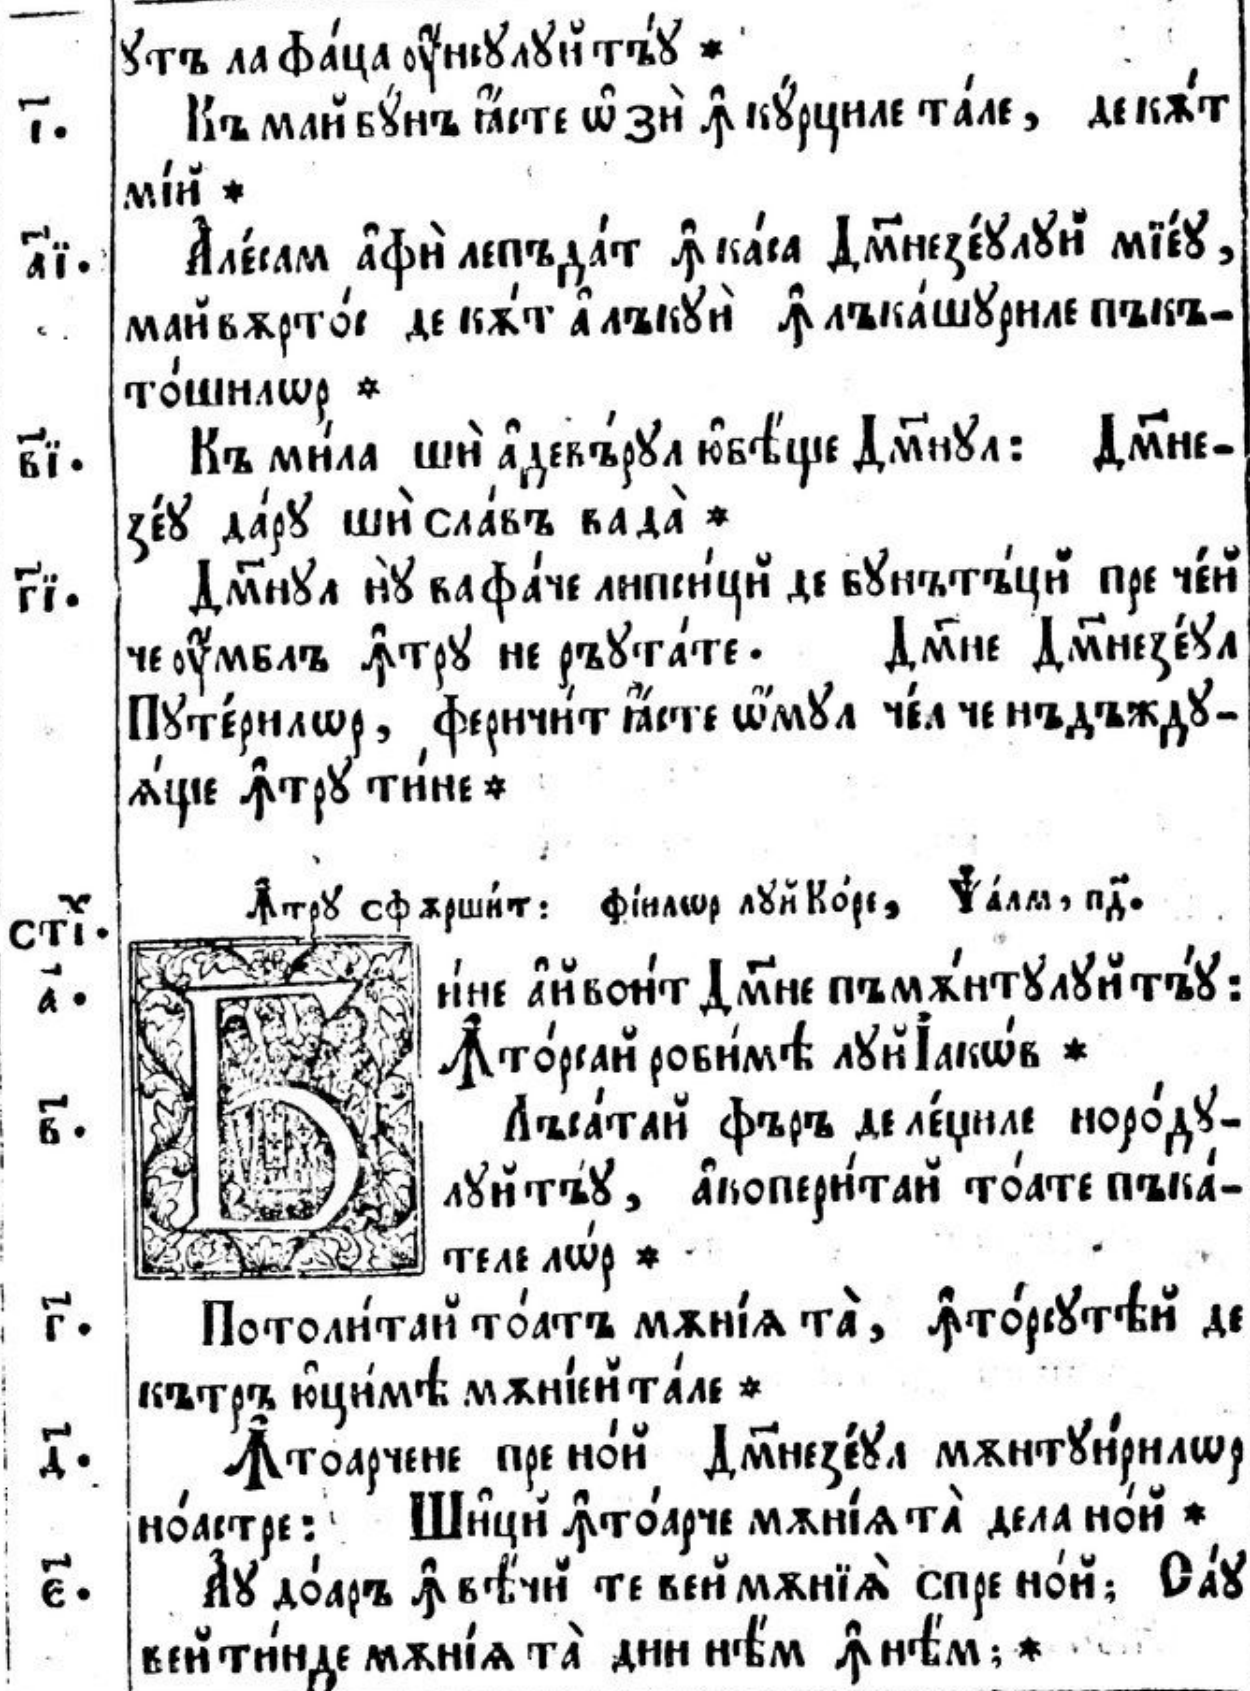 ꙋтъ ла фа́ца оу҆нсꙋлꙋй тъ́ꙋ *
і҃. Къ май бꙋ́нъ ꙗ҆́сте ѡ҆ зѝ ꙟ҆ кꙋ́рциле та́ле, де кѫ́т
мі́й *
а҃ї. А҆ле́сам а҆фѝ лепъда́т ꙟ҆ ка́са Дм҃незе́ꙋлꙋй мїе́ꙋ,
май вѫрто́с де кѫ́т а҆ лъкꙋѝ ꙟ҆ лъка́шꙋриле пъкъ-
то́шилѡр *
в҃ї. Къ ми́ла шѝ а҆девъ́рꙋл ю҆бѣ́ще Дм҃нꙋл: Дм҃не-
зе́ꙋ да́рꙋ шѝ сла́въ ва да̀ *
г҃ї. Дм҃нꙋл нꙋ̀ ва фа́че липси́ций де бꙋнътъ́ций пре че́й
че оу҆́мблъ ꙟ҆трꙋ не ръꙋта́те. Дм҃не Дм҃незе́ꙋл
Пꙋте́рилѡр, феричи́т ꙗ҆́сте ѡ҆́мꙋл че́л че нъдъждꙋ-
ѧ́ще ꙟ҆трꙋ ти́не *
Ꙟ҆трꙋ сфѫрши́т: фі́илѡр лꙋй Ко́ре, Ѱа́лм, пд҃.
стїх.
а҃. Би́не а҆й вои́т Дм҃не пъмѫ́нтꙋлꙋй тъ́ꙋ:
Ꙟ҆то́рсай роби́мѣ лꙋй І҆акѡ́в *
в҃. Лъса́тай фъръ де ле́циле норо́дꙋ-
лꙋй тъ́ꙋ, а҆копери́тай то́ате пъка́-
теле лѡ́р *
г҃. Потоли́тай то́атъ мѫні́ѧ та̀, ꙟ҆то́рсꙋтѣй де
кътръ ю҆ци́мѣ мѫні́ей та́ле *
д҃. Ꙟ҆тоарчене пре но́й Дм҃незе́ꙋл мѫнтꙋи́рилѡр
но́астре: Шѝций ꙟ҆то́арче мѫні́ѧ та̀ дела но́й *
є҃. А҆́ꙋ до́аръ ꙟ҆ вѣ́чй те вей мѫнїѧ̀ спре но́й; Са́ꙋ
вей ти́нде мѫні́ѧ та̀ дин нѣ́м ꙟ҆ нѣ́м; *